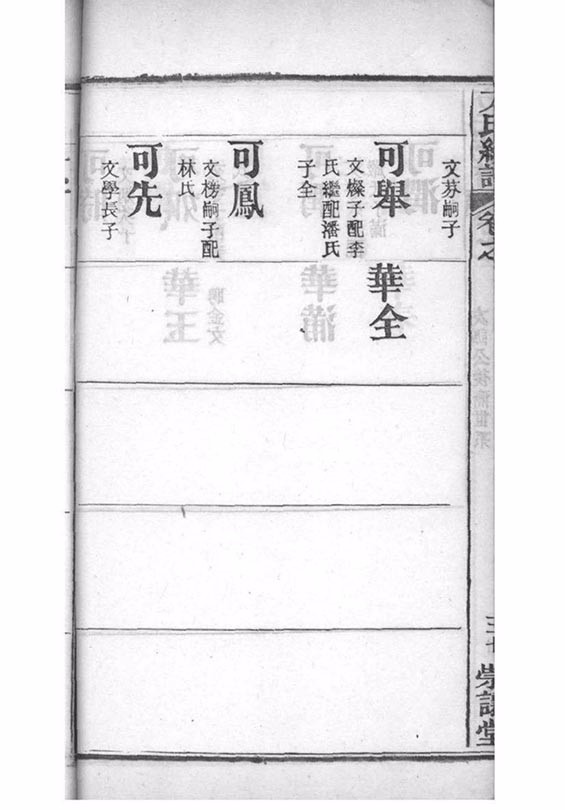 氏續譜
卷之
崇讓堂
文芬嗣子
可舉
文燦子配李
氏繼配潘氏
子全
華全
可鳳
文楞嗣子配
林氏
可先
文學長子